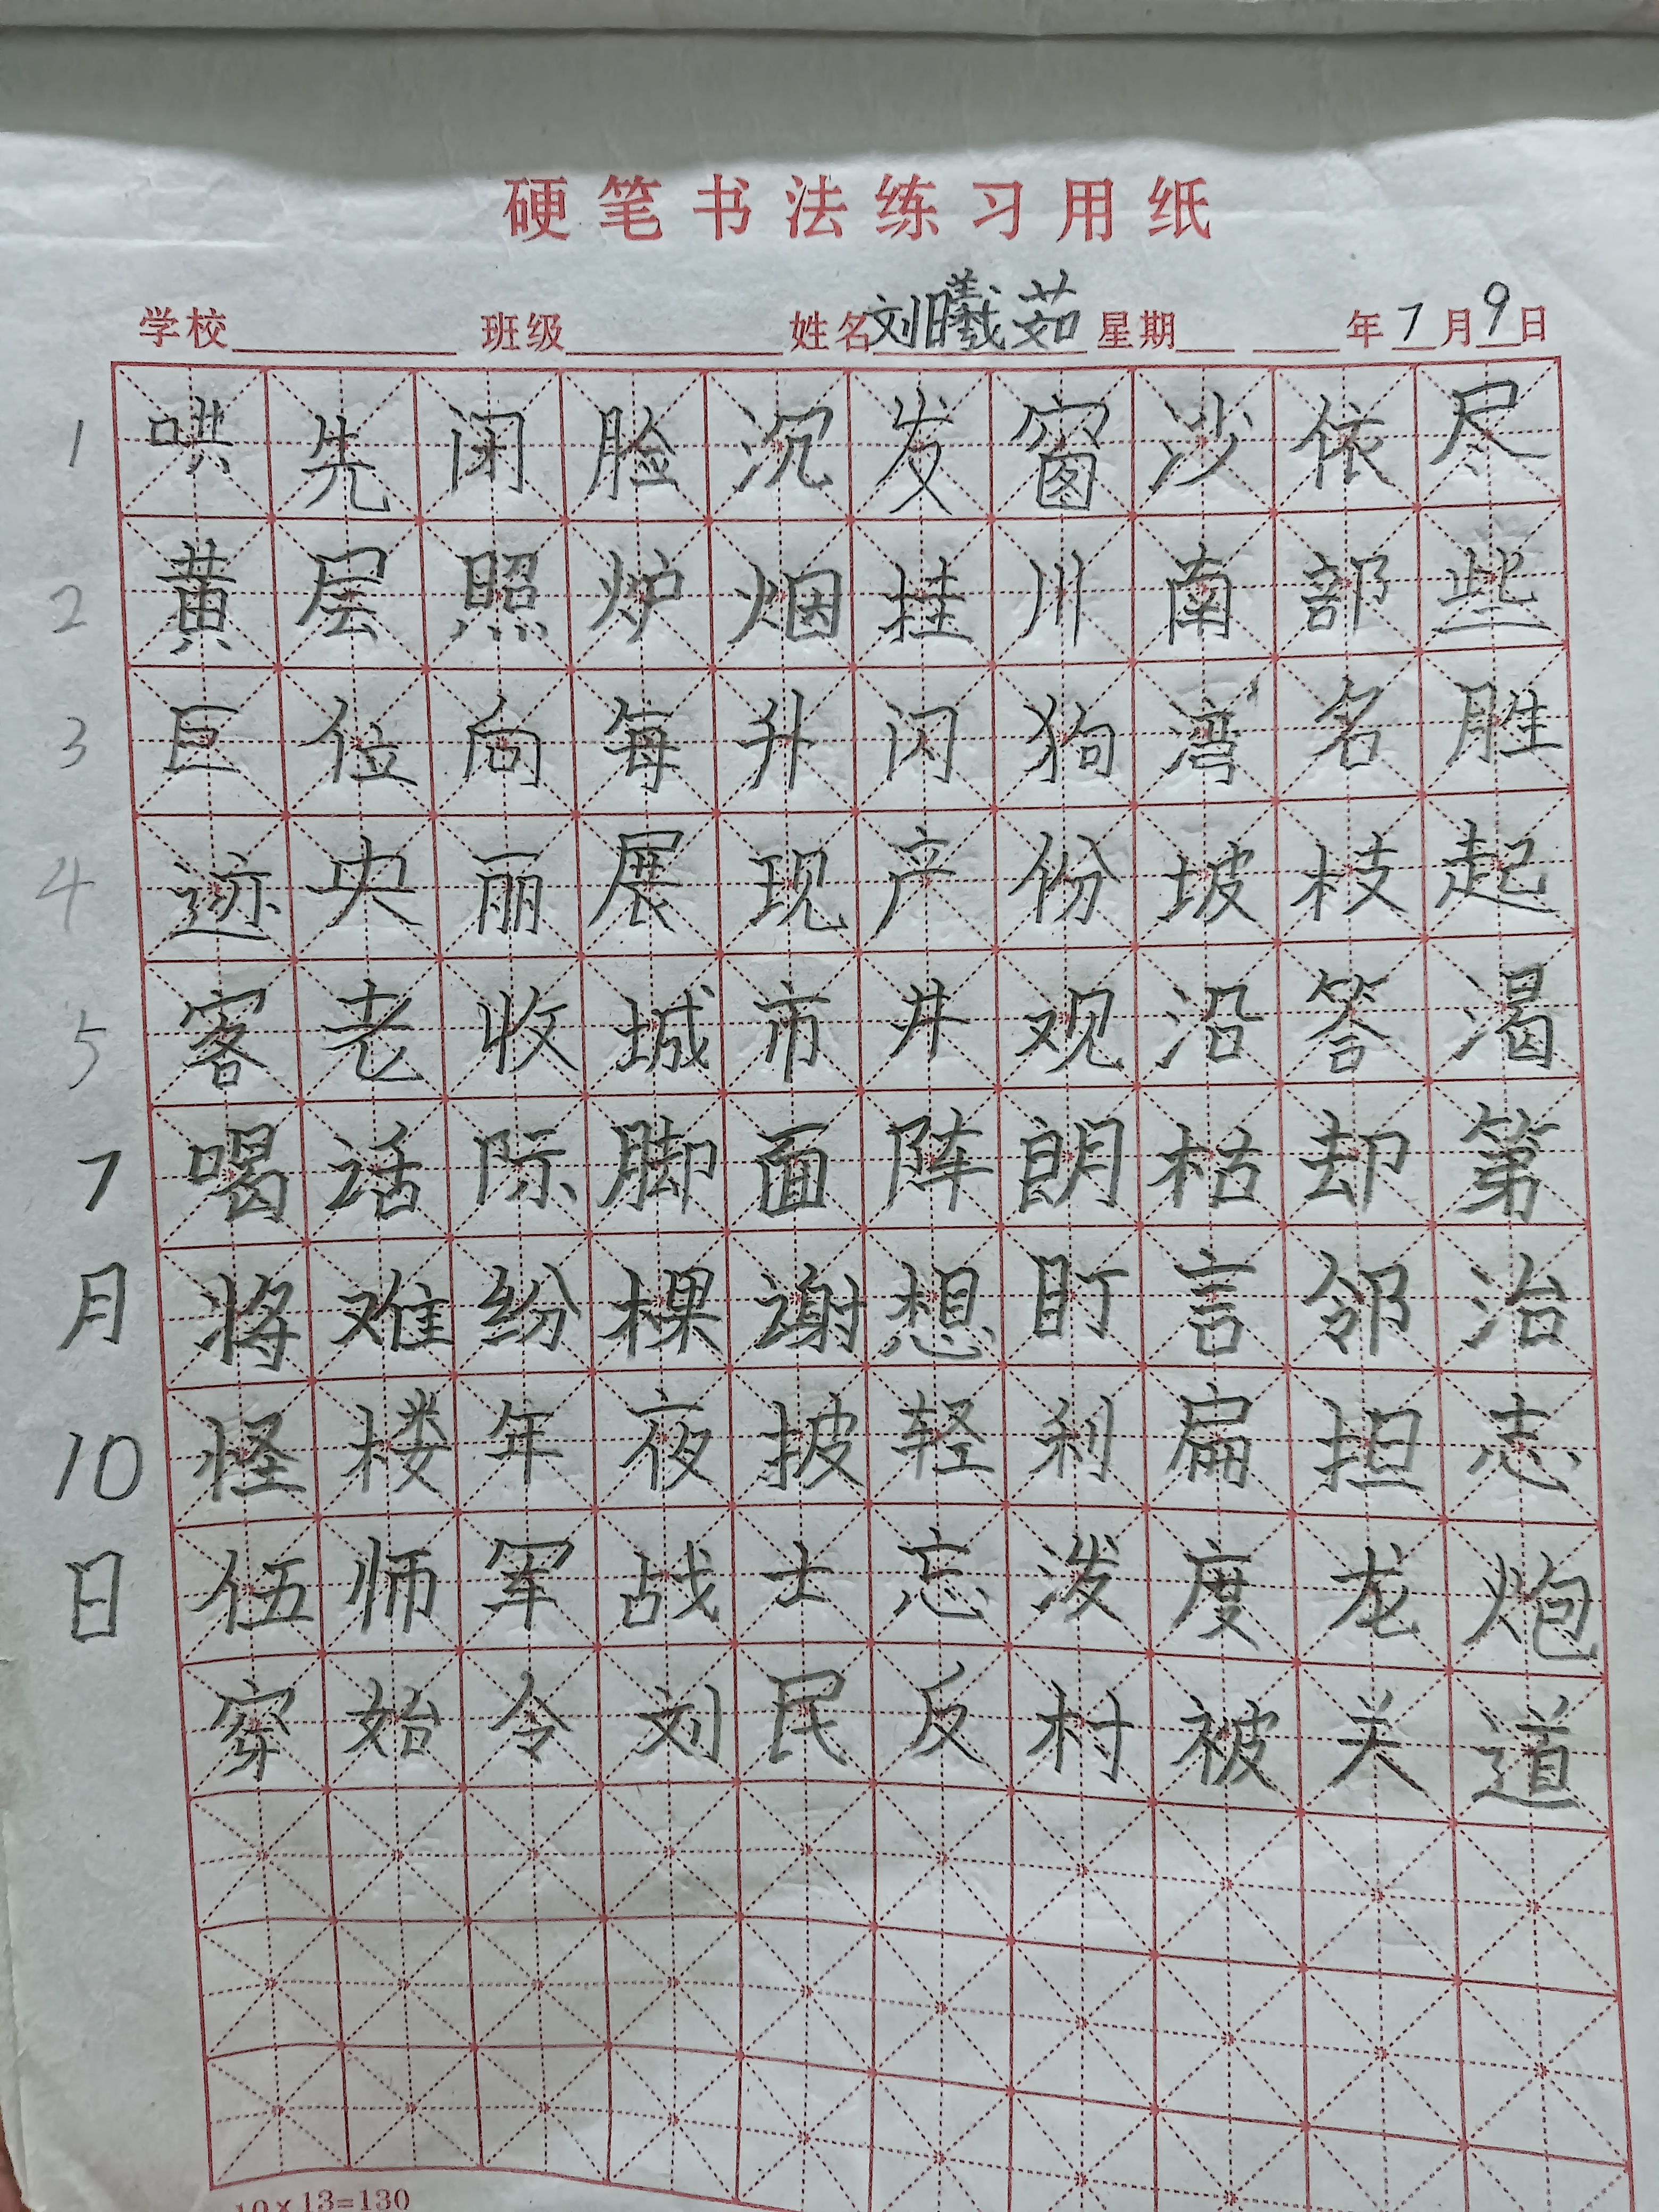 硬笔书法练习用纸
学校 班级 姓名刘曦茹 星期 年7月9日
1 哄先闭脸沉发窗沙依尽
2 黄层照炉烟挂川南部些
3 巨位向每升闪狗湾名胜
4 迹央丽展现产份坡枝起
5 客老收城市井观沿答渴
7 喝话际脚面阵朗枯却第
月 将难纷棵谢想盯言邻治
10 怪楼年夜披轻利扁担志
日 伍师军战士忘泼度龙炮
穿始令刘民反村被关道
10×13=130